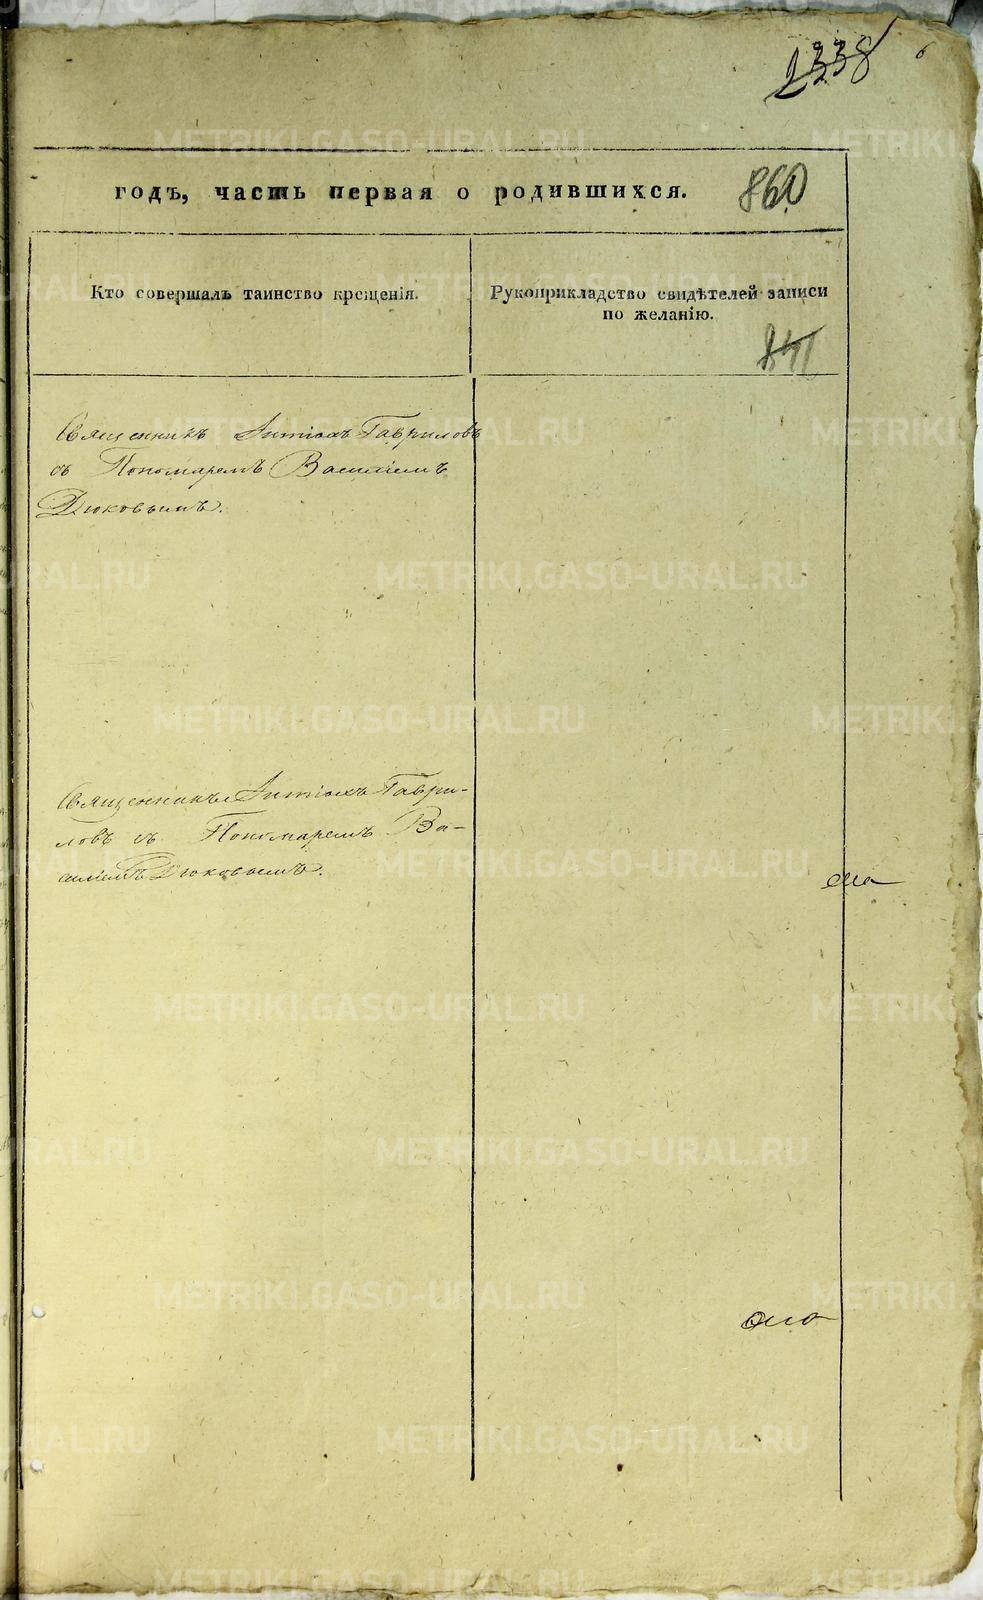 2338
6
годъ, часть первая о родившихся.
860
Кто совершалъ таинство крещенія.
Рукоприкладство свидѣтелей записи
по желанію.
841
Священникъ Антіохъ Гавриловъ
съ Пономаремъ Василіемъ
Дюковымъ.
Священникъ Антіохъ Гаври-
ловъ съ Пономаремъ Ва-
силіемъ Дюковымъ.
METRIKI.GASO-URAL.RU